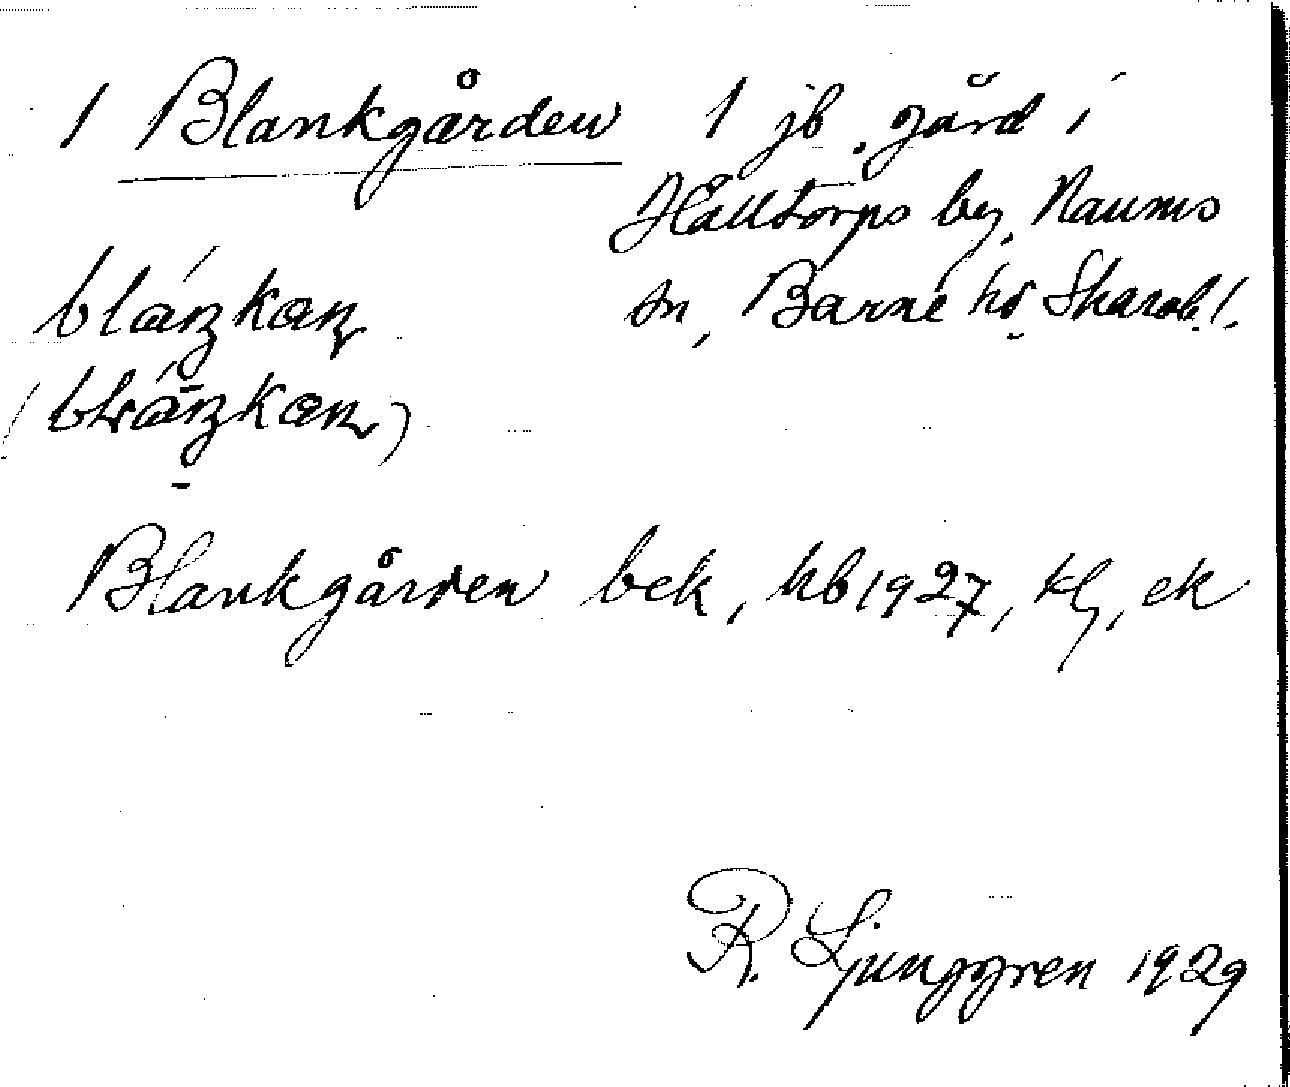 1 Blankgården 1 jb. gård i
Hålltorps by, Naums
sn, Barne hd. Skarab. l.
Blankgården bek, hb 1927, kg, ek
R. Ljunggren 1929